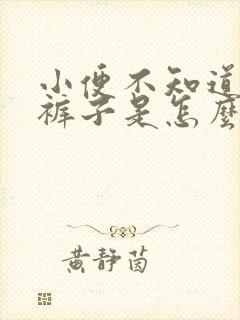 小便不知道
裤子是怎麽
黄静茵